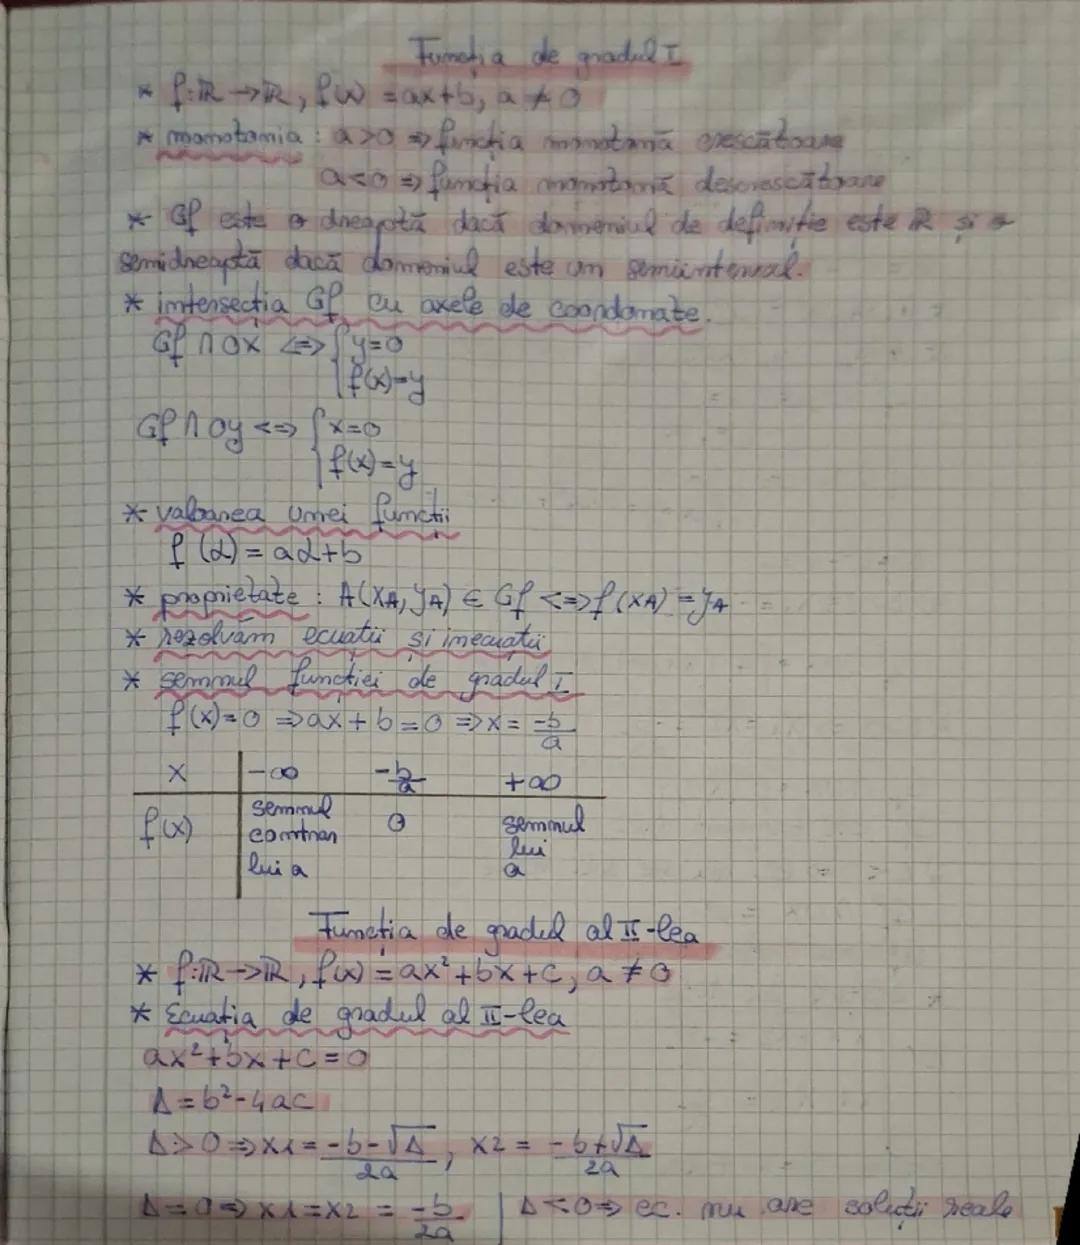 Funcția de gradul I
* f:ℝ→ℝ, f(x) = ax+b, a ≠ 0
* monotonia : a>0 ⇒ funcția monotonă crescătoare
a<0 ⇒ funcția monotonă descrescătoare
* Gf este o dreaptă dacă domeniul de definiție este ℝ și o
semidreaptă dacă domeniul este un semiinterval.
* intersecția Gf cu axele de coordonate.
Gf ∩ OX <=> { y=0
f(x)=y
Gf ∩ Oy <=> { x=0
f(x)=y
* valoarea unei funcții
f(α) = aα+b
* proprietate : A(XA, yA) ∈ Gf <=> f(XA) = yA
* rezolvăm ecuații și inecuații
* semnul funcției de gradul I
f(x)=0 ⇒ ax+b=0 ⇒ x = -b/a
x -∞ -b/a +∞
f(x) semnul contrar lui a 0 semnul lui a
Funcția de gradul al II-lea
* f:ℝ→ℝ, f(x) = ax²+bx+c, a ≠ 0
* Ecuația de gradul al II-lea
ax²+bx+c=0
Δ=b²-4ac
Δ>0 ⇒ x1 = -b-√Δ/2a, x2 = -b+√Δ/2a
Δ=0 ⇒ x1=x2 = -b/2a | Δ<0 ⇒ ec. nu are soluții reale